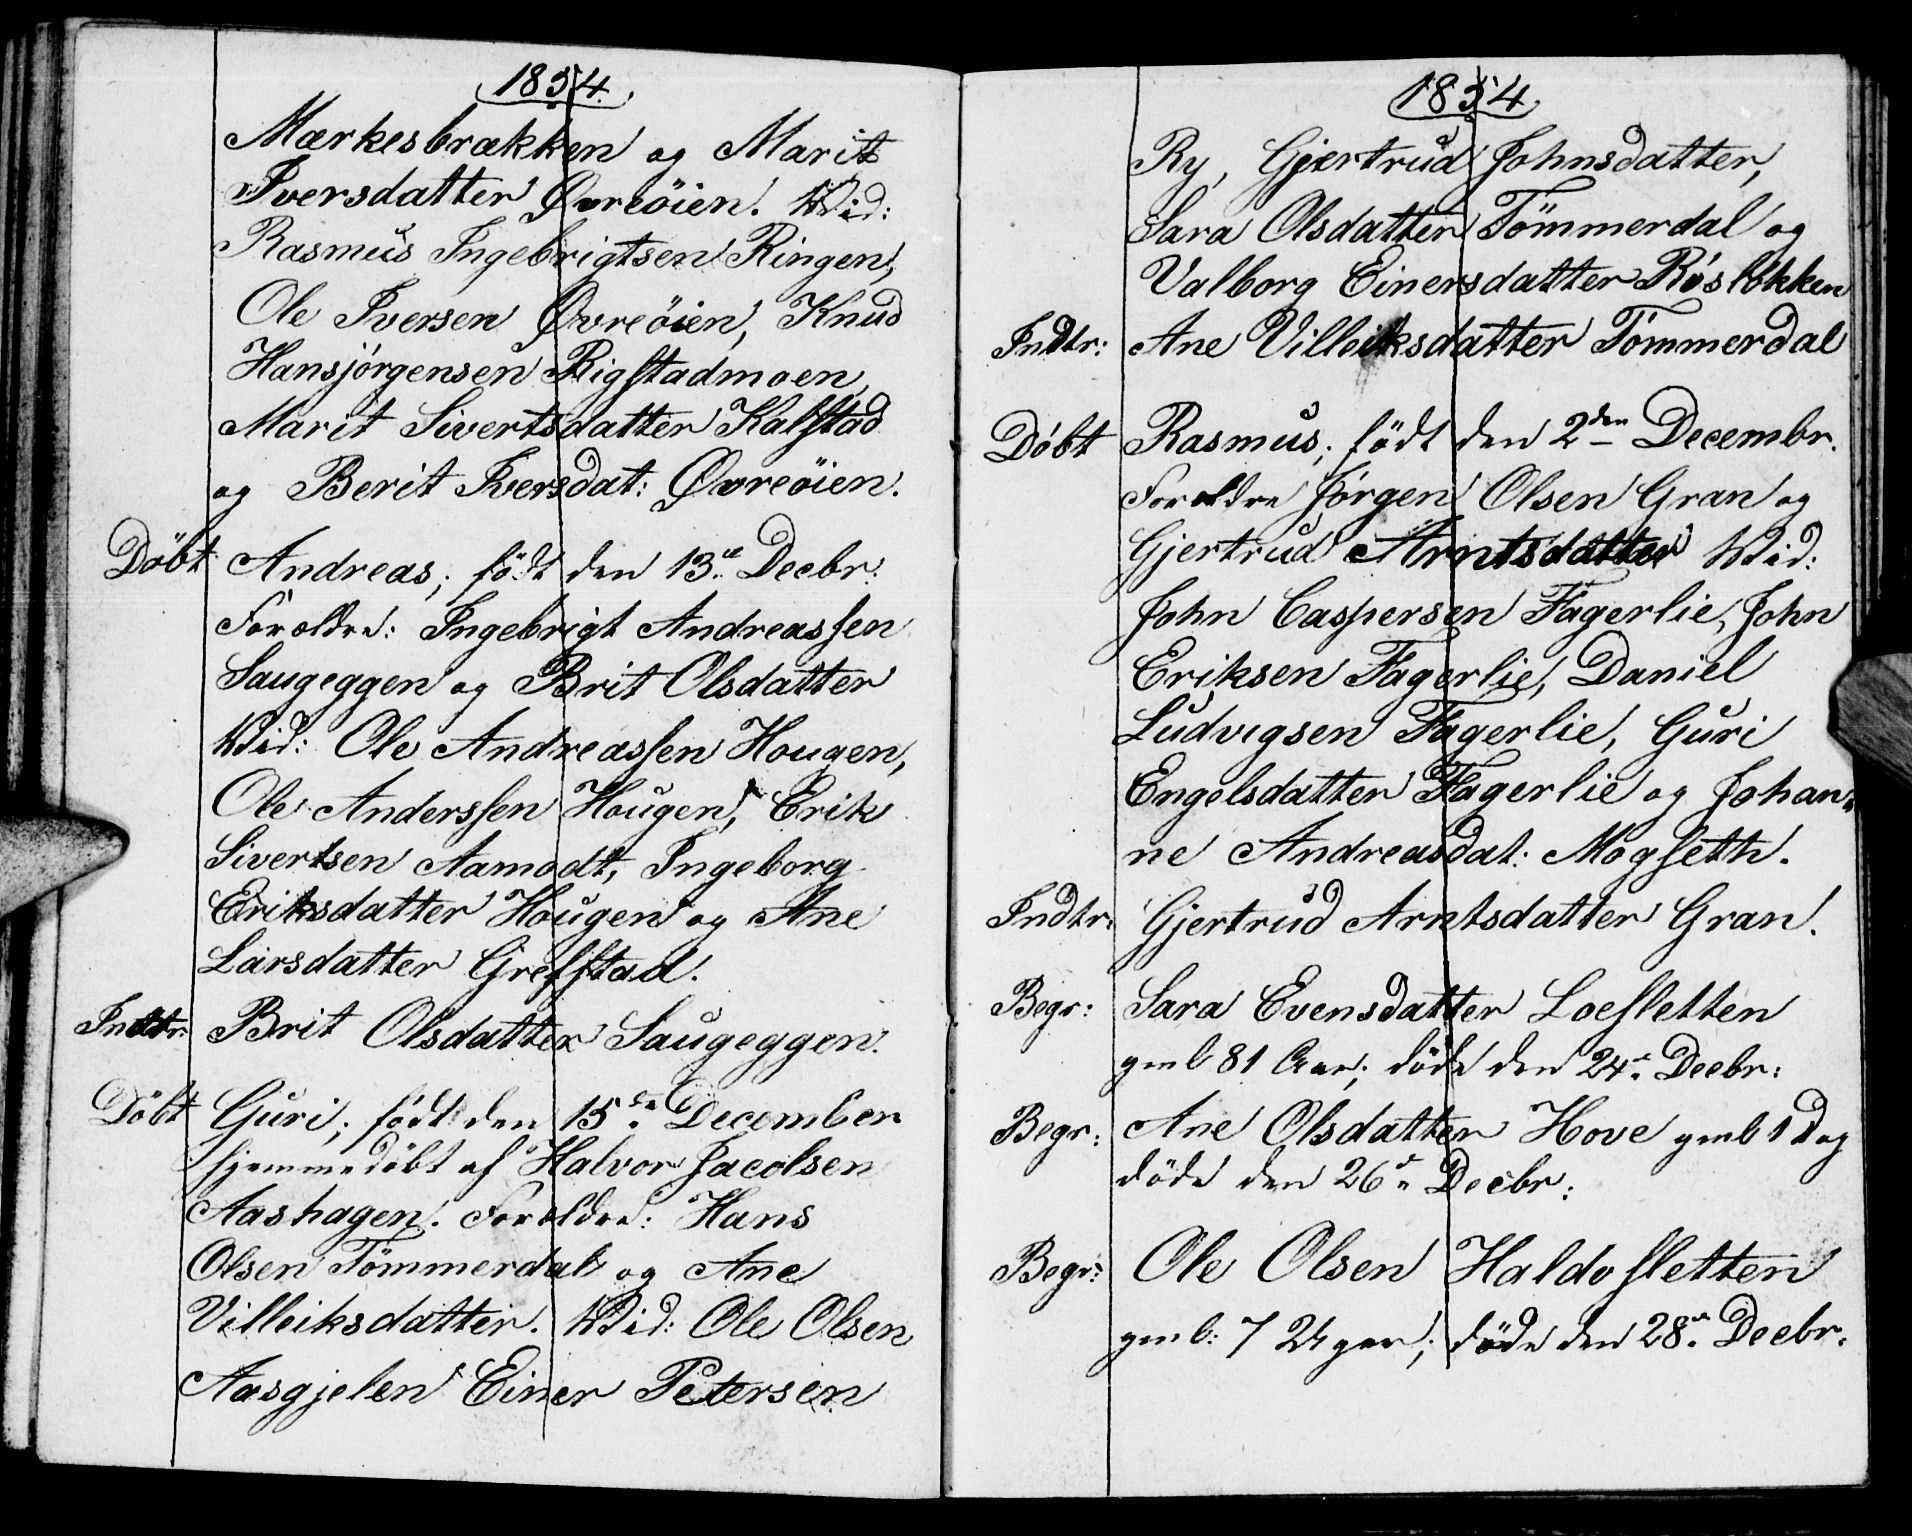 1854.
Mærkesbrækken og Marit
Iversdatter Øvreöien. Vid:
Rasmus Ingebrigtsen Ringen,
Ole Iversen Øvreöien, Knud
Hansjörgensen Rigstadmoen,
Marit Sivertsdatter Kalstad
og Berit Iversdat: Øvreöien.
Döbt Andreas; födt den 13de Decbr:
Forældre: Ingebrigt Andreassen
Saugeggen og Brit Olsdatter
Vid: Ole Andreassen Hougen,
Ole Anderssen Hougen, Erik
Sivertsen Aamodt, Ingeborg
Eriksdatter Hougen og Ane
Larsdatter Grefstad.
Indtr: Brit Olsdatter Saugeggen.
Döbt Guri; födt den 15de December
hjemmedöbt af Halvor Jacobsen
Aashagen. Forældre: Hans
Olsen Tömmerdal og Ane
Villeiksdatter. Vid: Ole Olsen
Aasgjelen Einer Petersen
1854
Ry, Gjertrud Johnsdatter,
Sara Olsdatter Tömmerdal og
Valborg Einersdatter Röslökken
Indtr: Ane Villeiksdatter Tömmerdal
Döbt Rasmus; födt den 2den Decembr.
Forældre Jörgen Olsen Gran og
Gjertrud Arntsdatter Vid:
John Caspersen Fagerlie, John
Eriksen Fagerlie, Daniel
Ludvigsen Fagerlie, Guri
Engelsdatter Fagerlie og Johan-
ne Andreasdat: Mogseth.
Indtr: Gjertrud Arntsdatter Gran.
Begr: Sara Evensdatter Loesletten
gml 81 Aar; döde den 24de Decbr:
Begr: Ane Olsdatter Hove gml 1 Dag
döde den 26de Decbr:
Begr: Ole Olsen Haldosletten
gml: 7 Uger; döde den 28de Decbr: